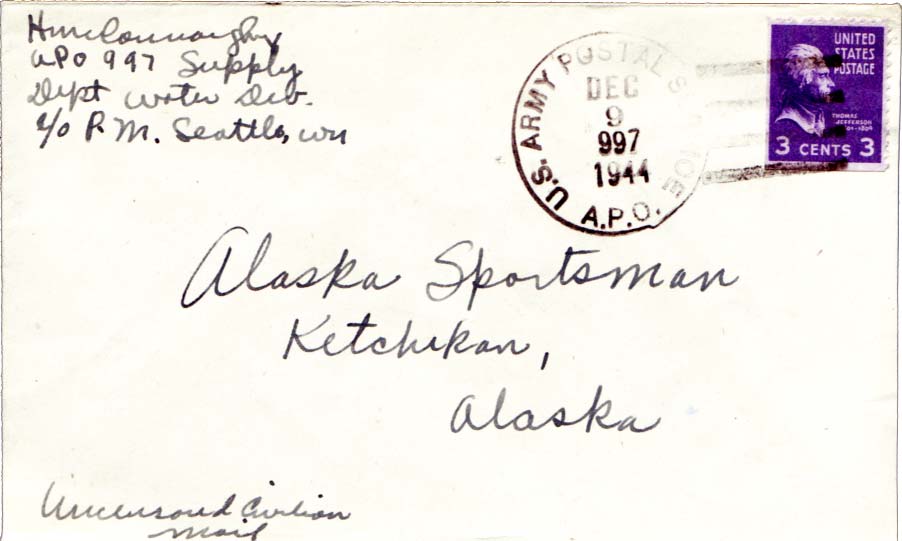 H McConnaughy
APO 997 Supply
Dept Water Div.
c/o P.M. Seattle, Wn
U.S. ARMY POSTAL S ICE
DEC
9
997
1944
A.P.O.
UNITED
STATES
POSTAGE
THOMAS
JEFFERSON
3 CENTS 3
Alaska Sportsman
Ketchikan,
Alaska
Uncensored Civilian
Mail